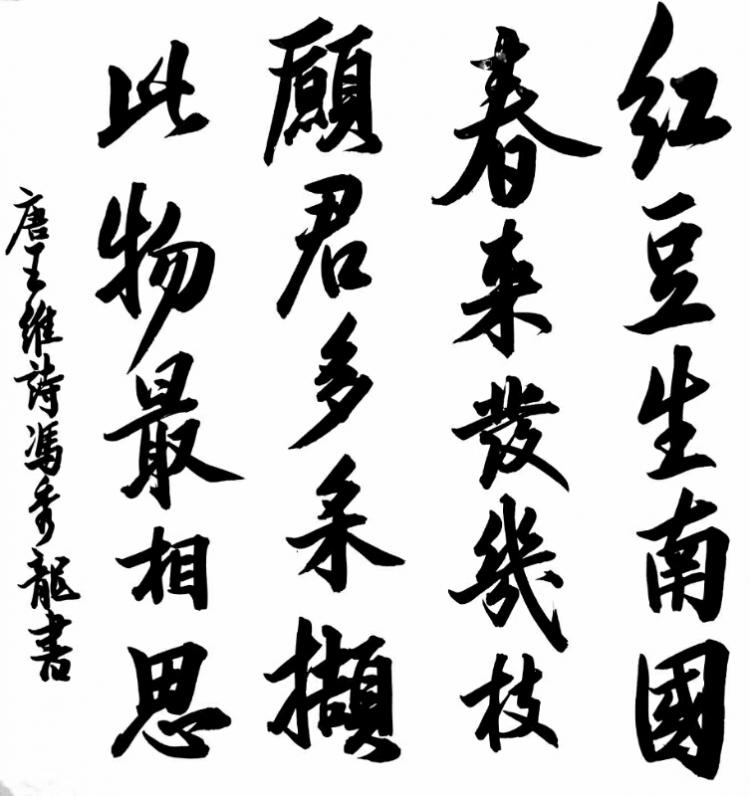 红豆生南國
春来發幾枝
願君多采擷
此物最相思
唐王維詩馮秀龍書